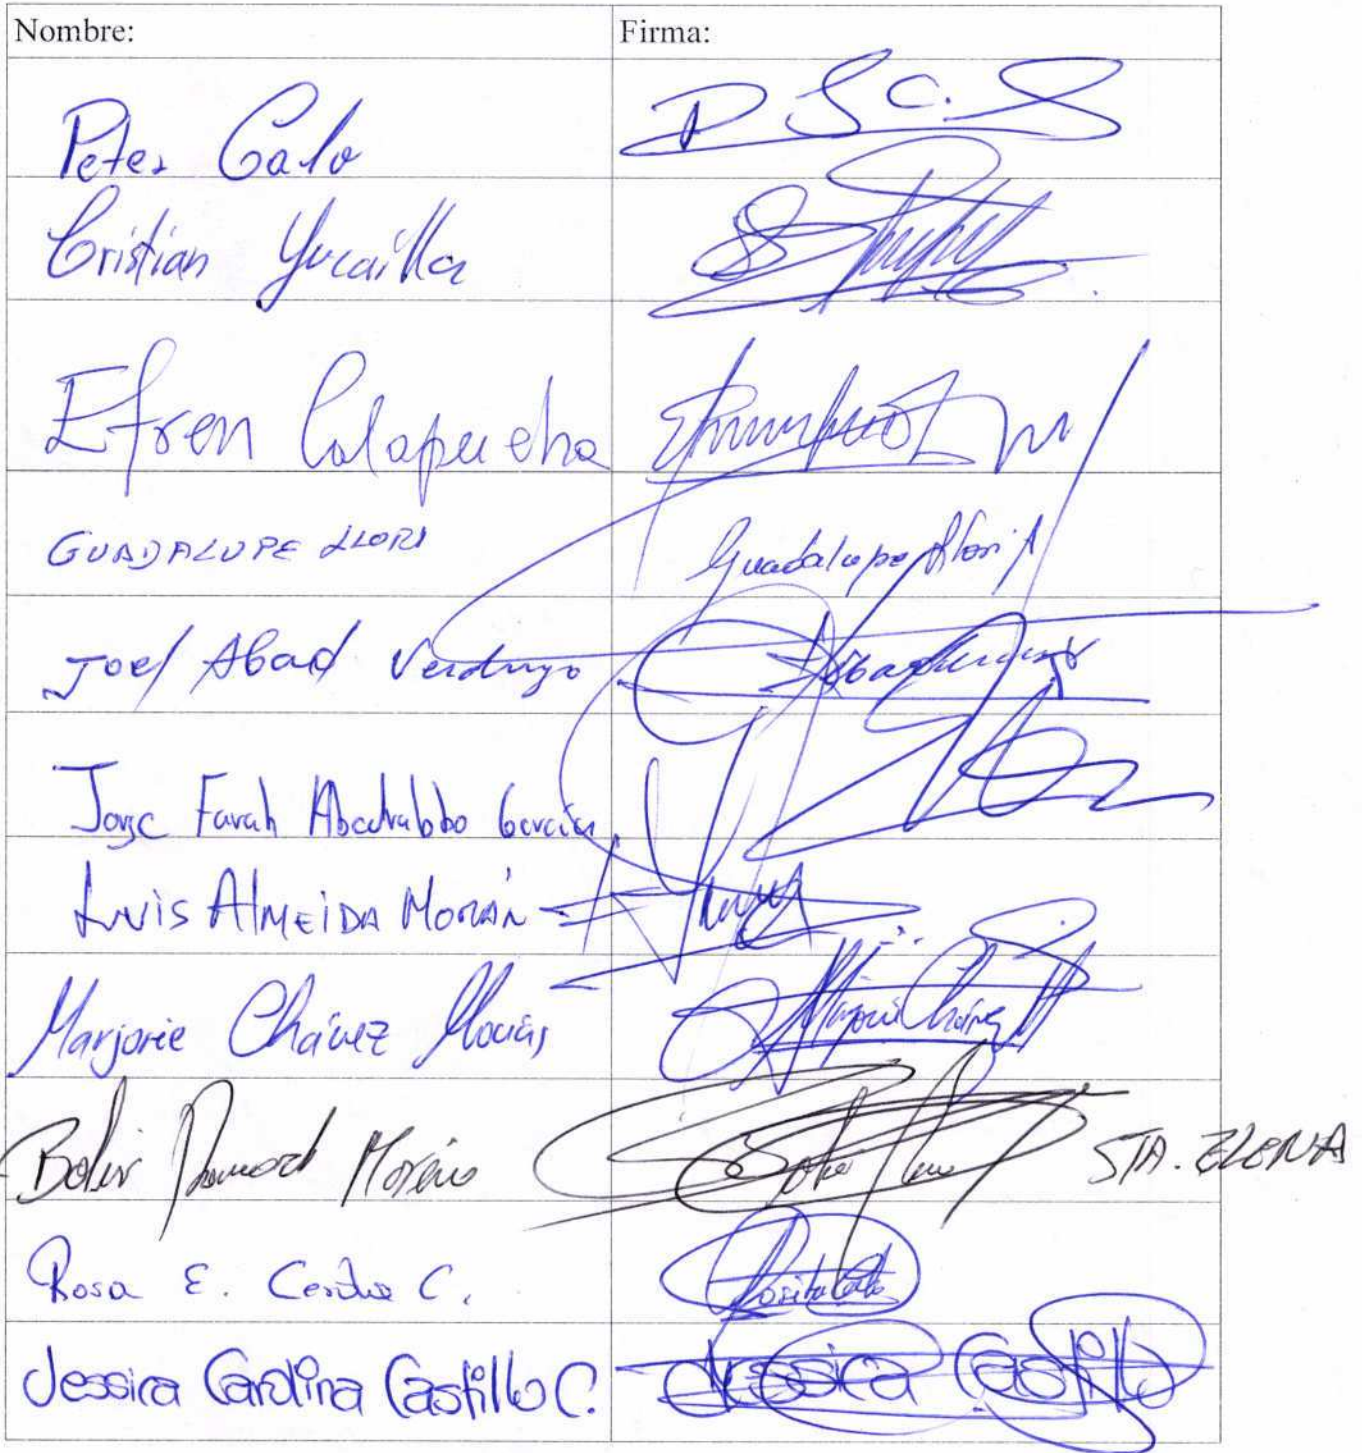 Nombre: Firma:
Peter Calo D S C. S
Cristian Yucailla
Efren Calapucha
GUADALUPE LLORI Guadalupe Llori
Joel Abad Verdugo
Jorge Farah Abedrabbo García
Luis ALMEIDA MORÁN
Marjorie Chávez Macías Marjorie Chávez
Moreno STA. ELENA
Rosa E. Cerda C. Rosita Cerda
Jessica Carolina Castillo C. Jessica Castillo